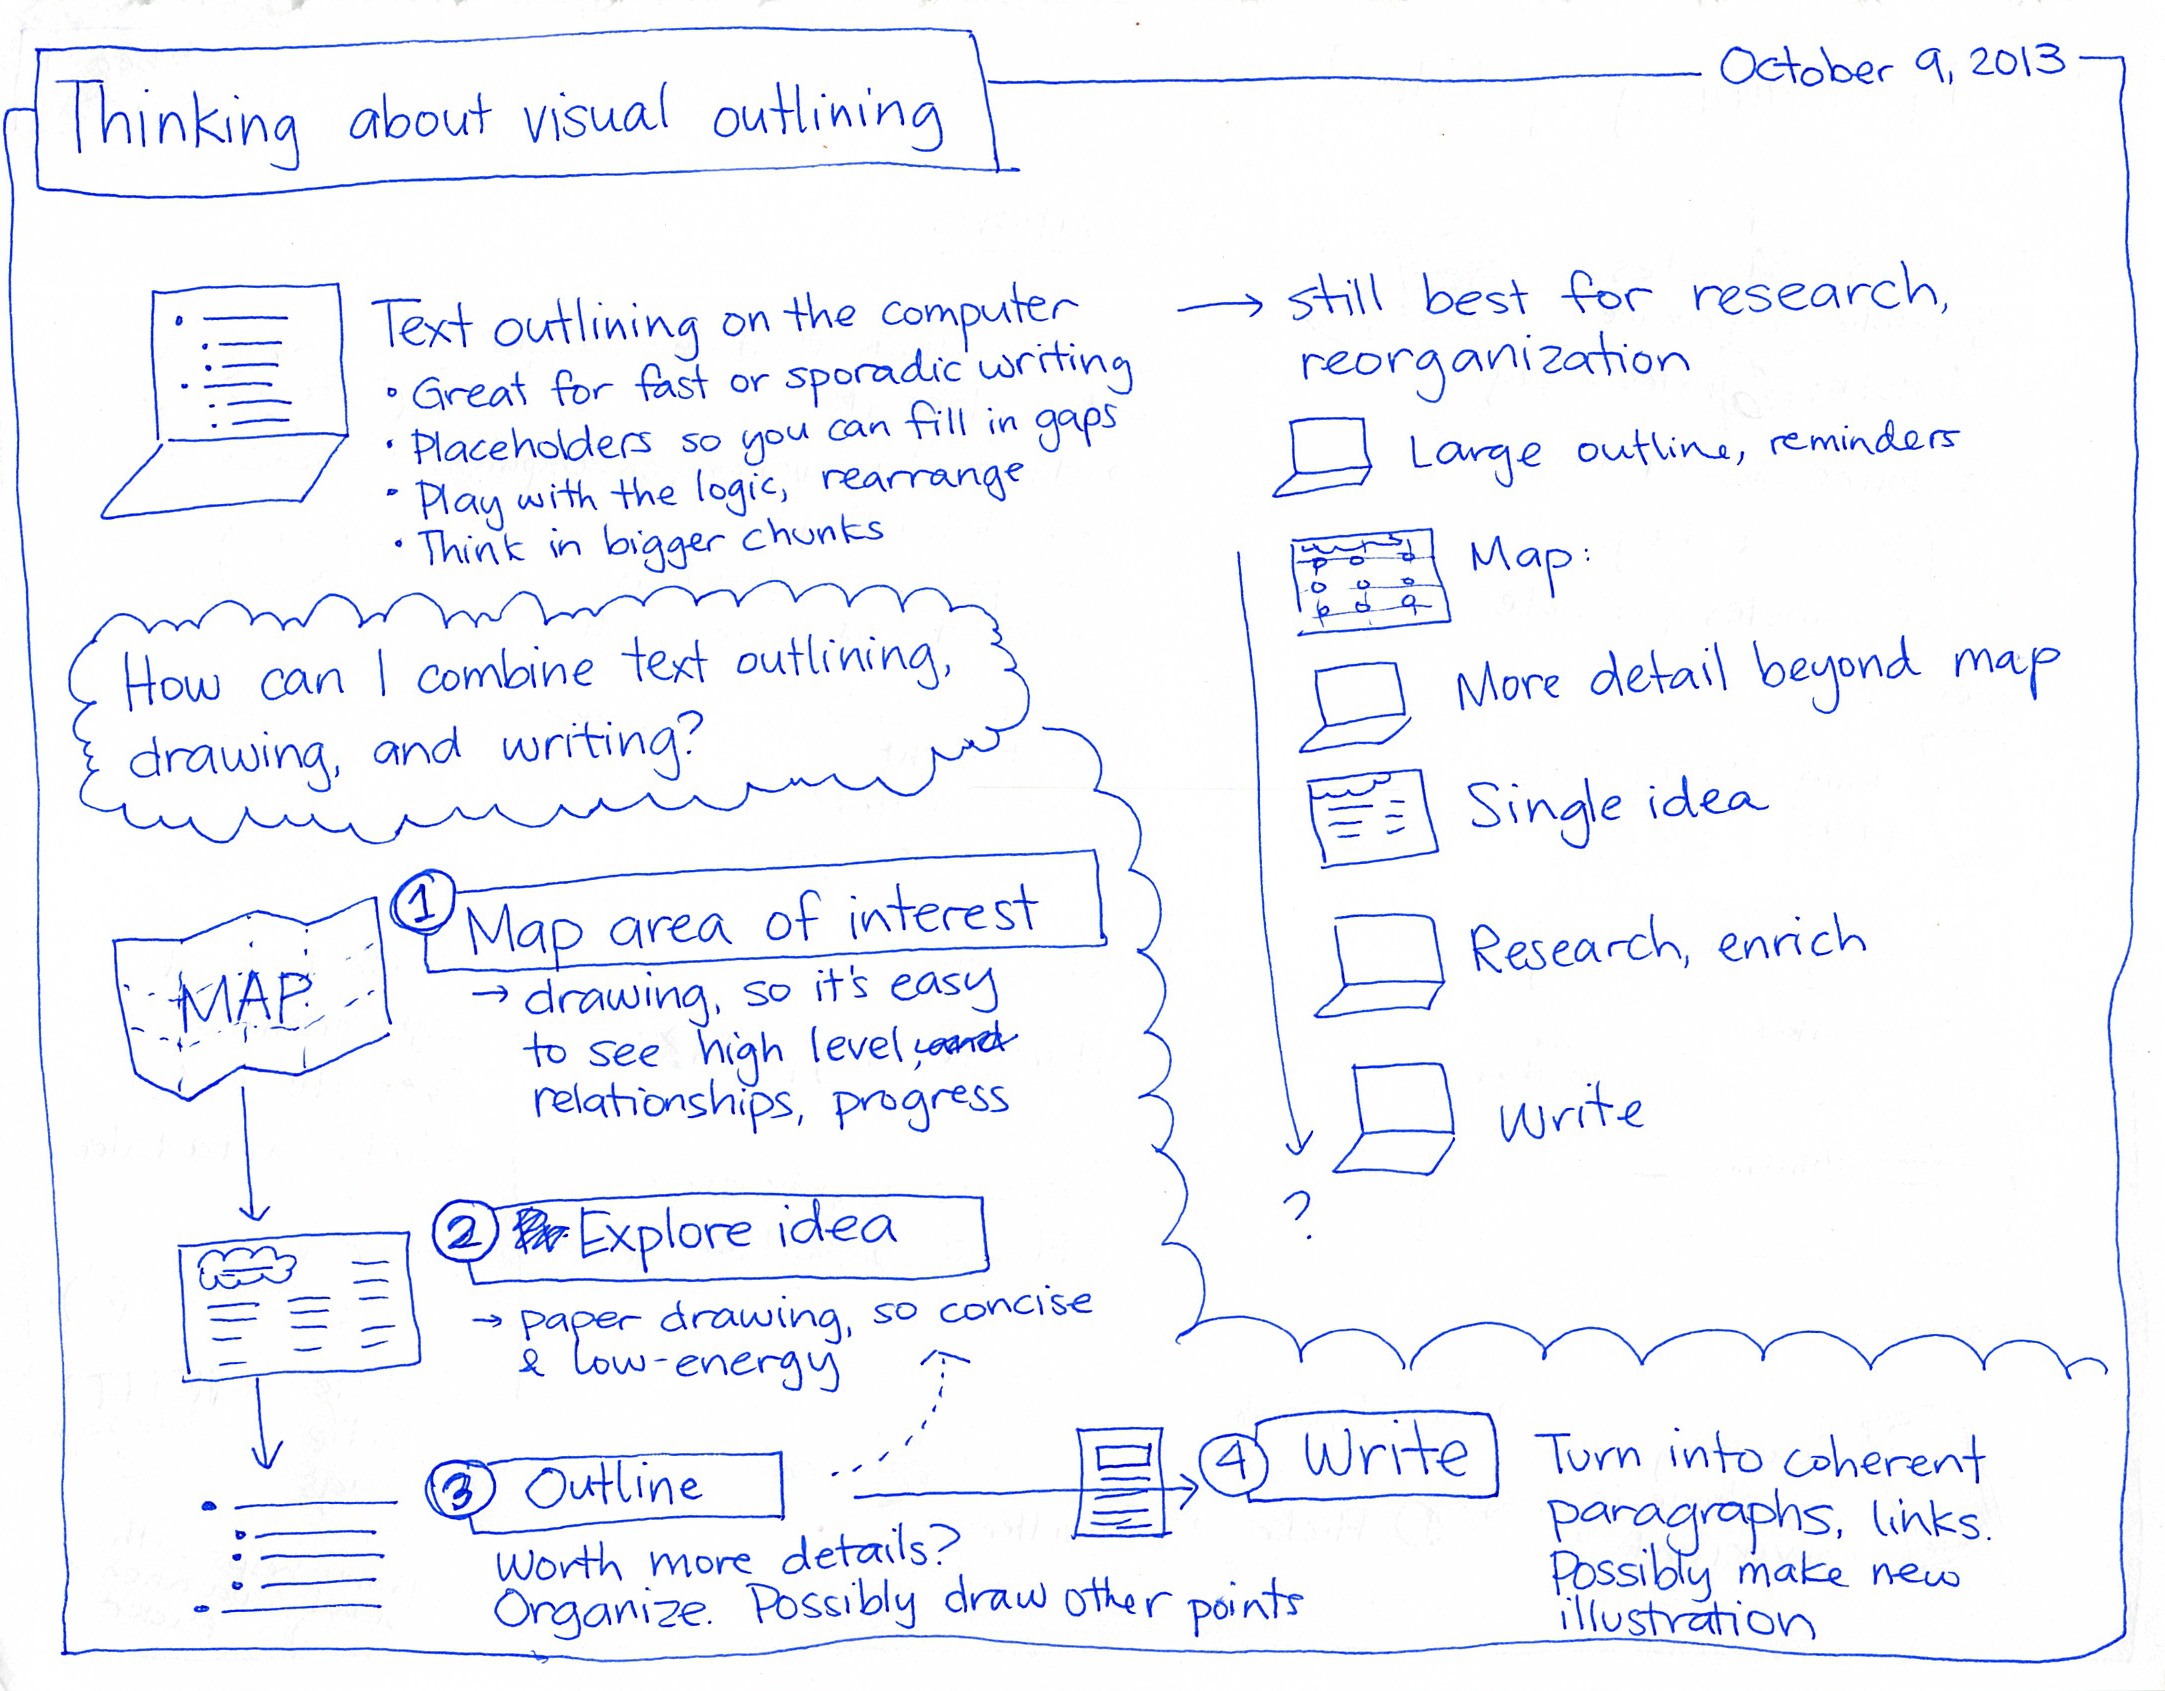 Thinking about visual outlining
October 9, 2013
Text outlining on the computer
• Great for fast or sporadic writing
• Placeholders so you can fill in gaps
• Play with the logic, rearrange
• Think in bigger chunks
→ still best for research,
reorganization
Large outline, reminders
Map:
More detail beyond map
Single idea
Research, enrich
Write
?
How can I combine text outlining,
drawing, and writing?
MAP
1 Map area of interest
→ drawing, so it's easy
to see high level, and
relationships, progress
2 Explore idea
→ paper drawing, so concise
& low-energy
3 Outline
Worth more details?
Organize. Possibly draw other points
4 Write
Turn into coherent
paragraphs, links.
Possibly make new
illustration